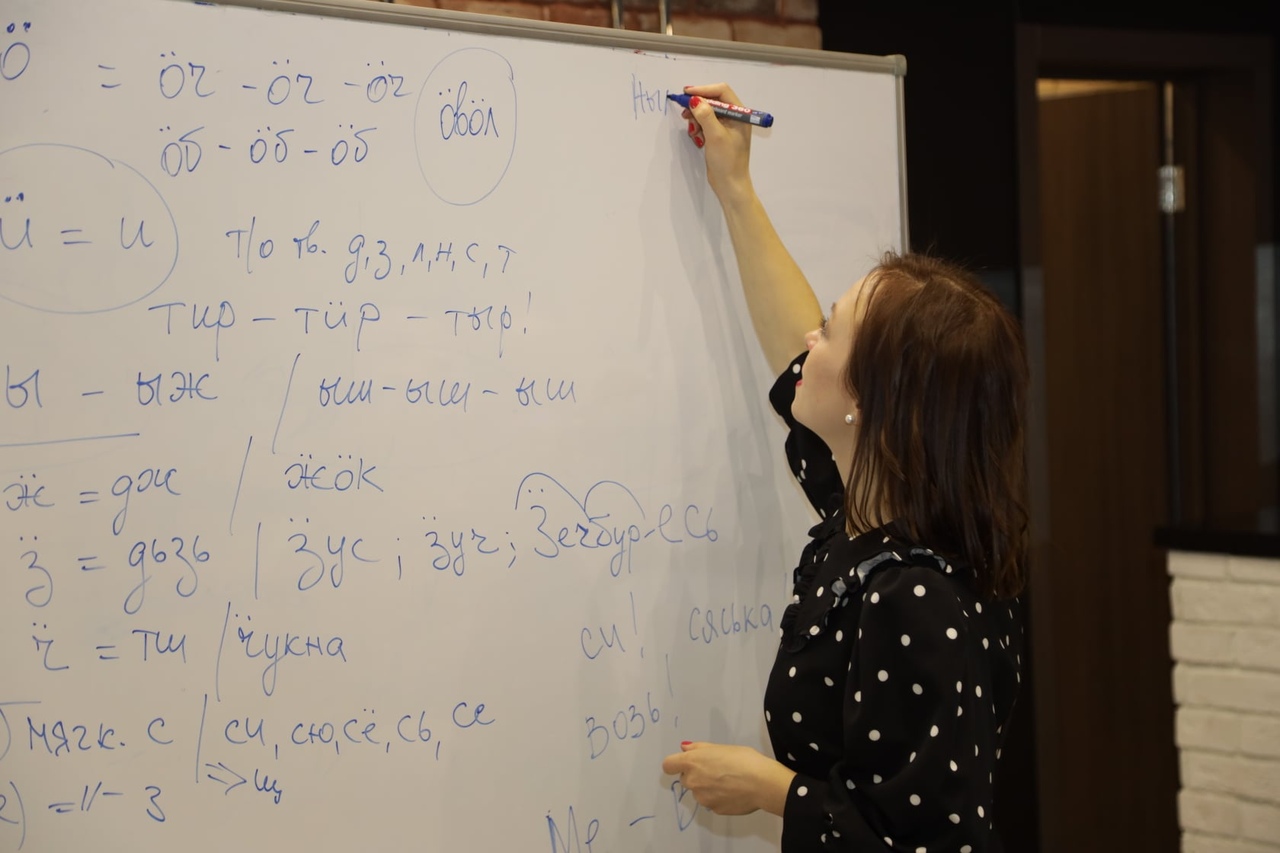 ӧ = ӧч - ӧч - ӧч ӧвӧл Ны
ӧб - ӧб - ӧб
ӥ = и т/о тв. д, з, л, н, с, т
тир - тӥр - тыр!
ы - ыж / ыш - ыш - ыш
ӝ = дж / ӝӧк
ӟ = дьзь / ӟус ; ӟуч ; Ӟечбур-есь
ӵ = тш / ӵукна си! сяська
мягк. с / си, сю, сё, сь, се возь!
=//- з => щ
Ме -